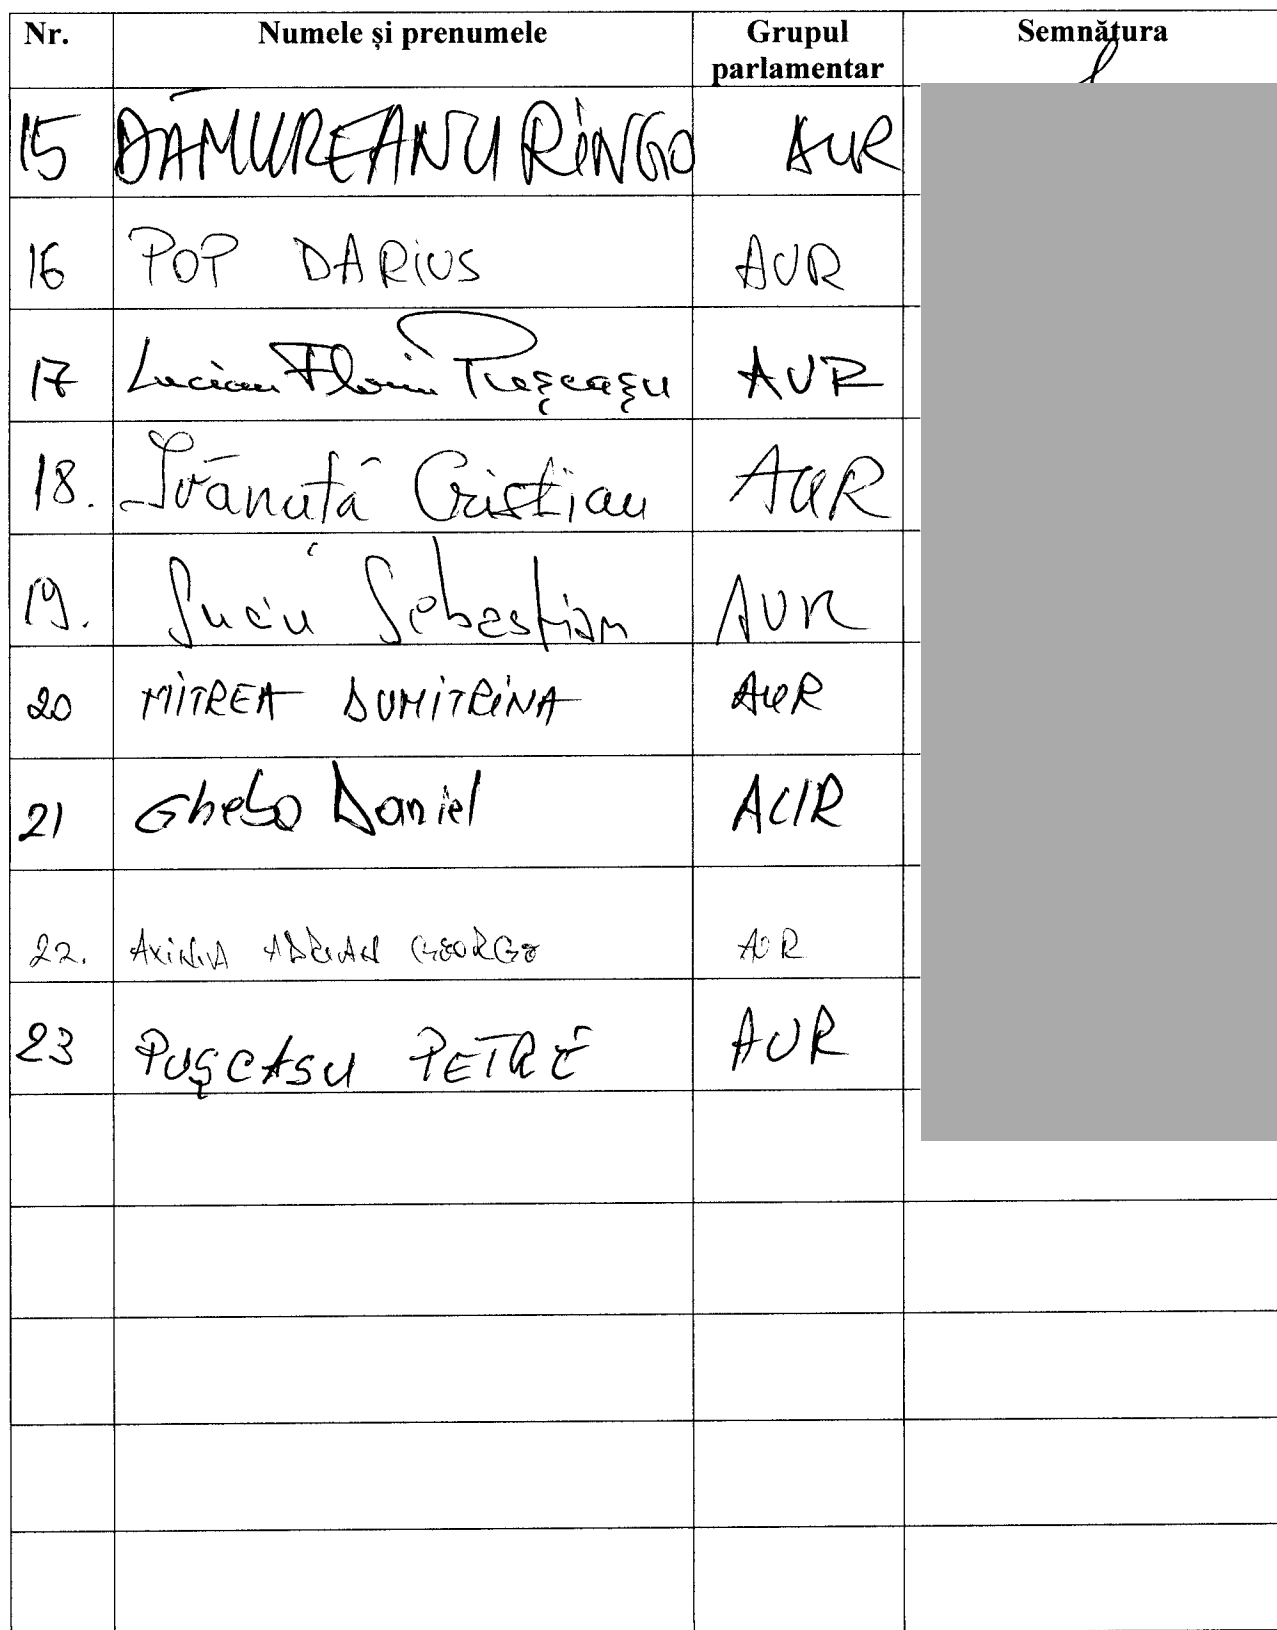 Nr. Numele și prenumele Grupul parlamentar Semnătura
15 DĂMUREANU RINGO AUR
16 POP DARIUS AUR
17 Lucian Florin Pușcașu AUR
18. Ivănuță Cristian AUR
19. Suciu Sebastian AUR
20 MITREA DUMITRINA AUR
21 Gheba Daniel AUR
22. AXINIA ADRIAN GEORGE AUR
23 PUȘCASU PETRE AUR